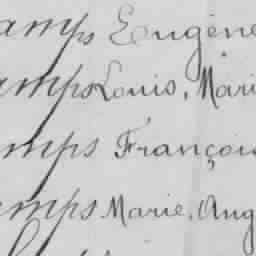 amps Eugène
amps Louis, Mari
mps François
mps Marie, Aug